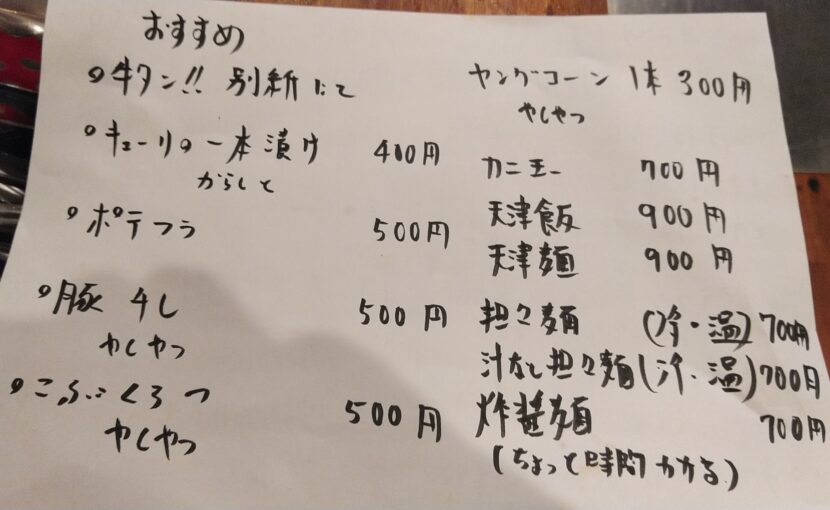 おすすめ
○牛タン!! 別紙にて
○キューリの一本漬け 400円
からしと
○ポテフラ 500円
○豚 500円
やしやつ
○こぶくろ 500円
やしやつ
ヤングコーン 1本 300円
やしやつ
カニ玉 700円
天津飯 900円
天津麺 900円
担々麺 (冷・温) 700円
汁なし担々麺 (冷・温) 700円
炸醤麺 700円
(ちょっと時間かかる)